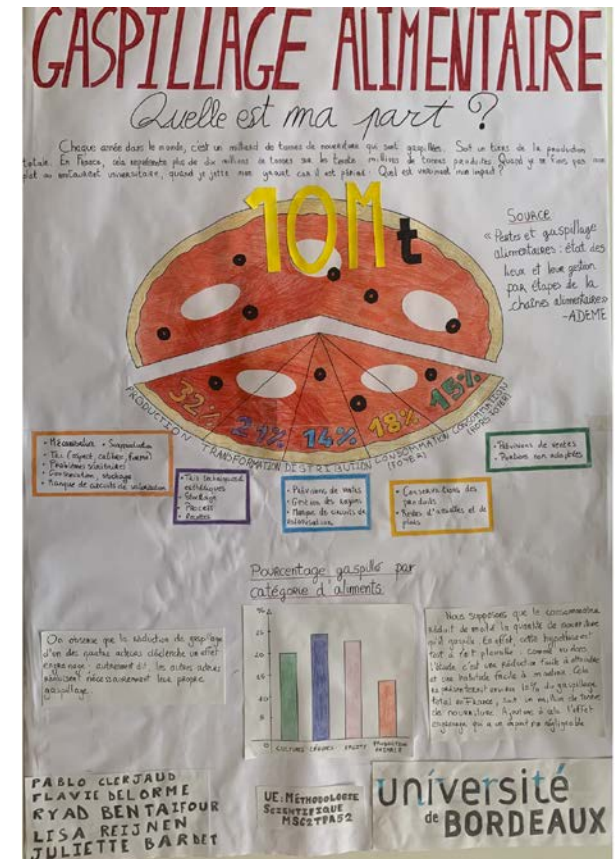 GASPILLAGE ALIMENTAIRE
Quelle est ma part ?
Chaque année dans le monde, c'est un milliard de tonnes de nourriture qui sont gaspillées. Soit un tiers de la production
totale. En France, cela représente plus de dix millions de tonnes sur les trente millions de tonnes produites. Quand je ne finis pas mon
plat au restaurant universitaire, quand je jette mon yaourt car il est périmé : Quel est vraiment mon impact ?
10Mt
SOURCE
« Pertes et gaspillage
alimentaires : état des
lieux et leur gestion
par étapes de la
chaînes alimentaire »
-ADEME
32%
21%
14%
18%
15%
PRODUCTION
TRANSFORMATION
DISTRIBUTION
CONSOMMATION
(FOYER)
CONSOMMATION
(HORS FOYER)
• Surproduction
• Tri (aspect, calibre, forme)
• Problèmes sanitaires
• Conservation, stockage
• Manque de circuits de valorisation
• Tris techniques et
esthétiques
• Stockage
• Process
• Prévisions de ventes
• Gestion des rayons
• Manque de circuits de
valorisation
• Conservations des
produits
• Restes d'assiettes et de
plats
• Prévisions de ventes
• Portions non adaptées
Pourcentage gaspillé par
catégorie d'aliments
%
25
20
15
10
5
0
CULTURES
LÉGUMES
FRUITS
PRODUCTION
ANIMALE
On observe que la réduction de gaspillage
d'un des quatre acteurs déclenche un effet
engrenage : autrement dit, les autres acteurs
réduisent nécessairement leur propre
gaspillage.
Nous supposons que le consommateur
réduit de moitié la quantité de nourriture
qu'il gaspille. En effet, cette hypothèse est
tout à fait plausible : comme vu dans
l'étude c'est une réduction facile à atteindre
et une habitude facile à Cela
représenterait environ 10% du gaspillage
total en France, soit un million de tonnes
de nourriture. Ajoutons à cela l'effet
engrenage qui a un impact non négligeable
PABLO CLERJAUD
FLAVIE DELORME
RYAD BENTAIFOUR
LISA REIJNEN
JULIETTE BARDET
UE: MÉTHODOLOGIE
SCIENTIFIQUE
MSC2TPA52
université
de BORDEAUX